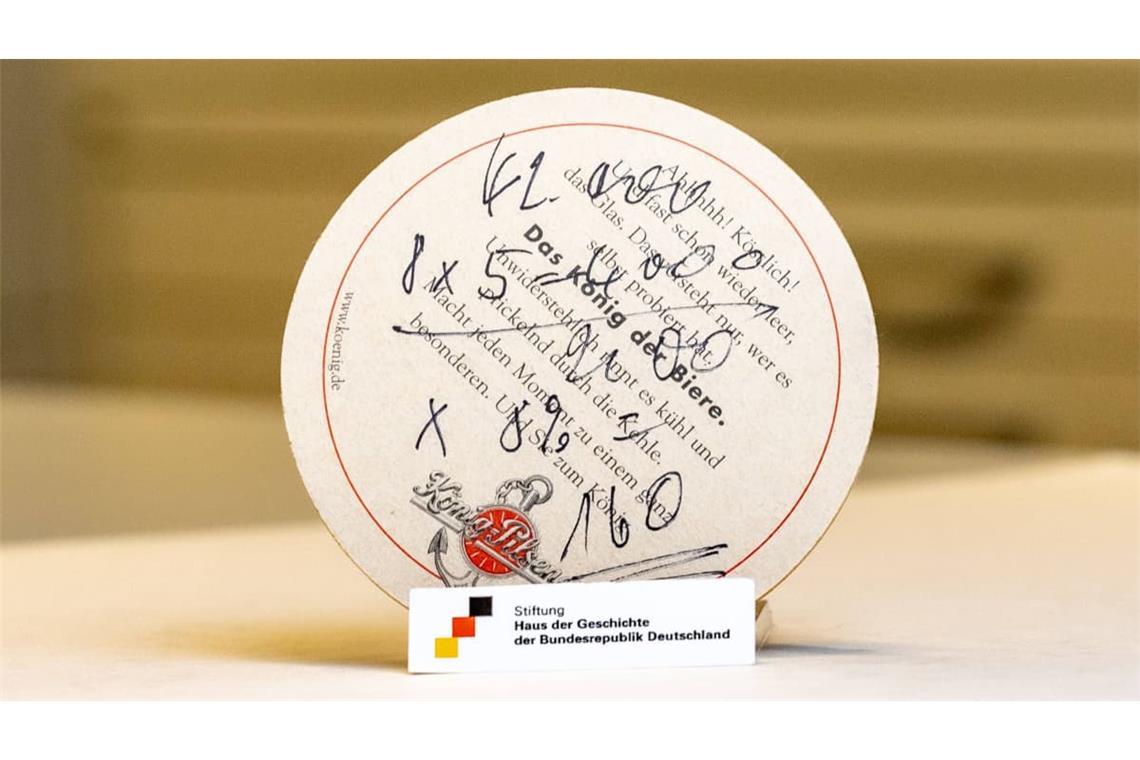 Ahhhhh! Köstlich!
Und fast schon wieder leer,
das Glas. Das versteht nur, wer es
selbst probiert hat.
Das König der Biere.
Unwiderstehlich rinnt es kühl und
prickelnd durch die Kehle.
Macht jeden Moment zu einem ganz
besonderen. Und Sie zum König.
www.koenig.de
8 x 5
x
160
König-Pilsener
Stiftung
Haus der Geschichte
der Bundesrepublik Deutschland